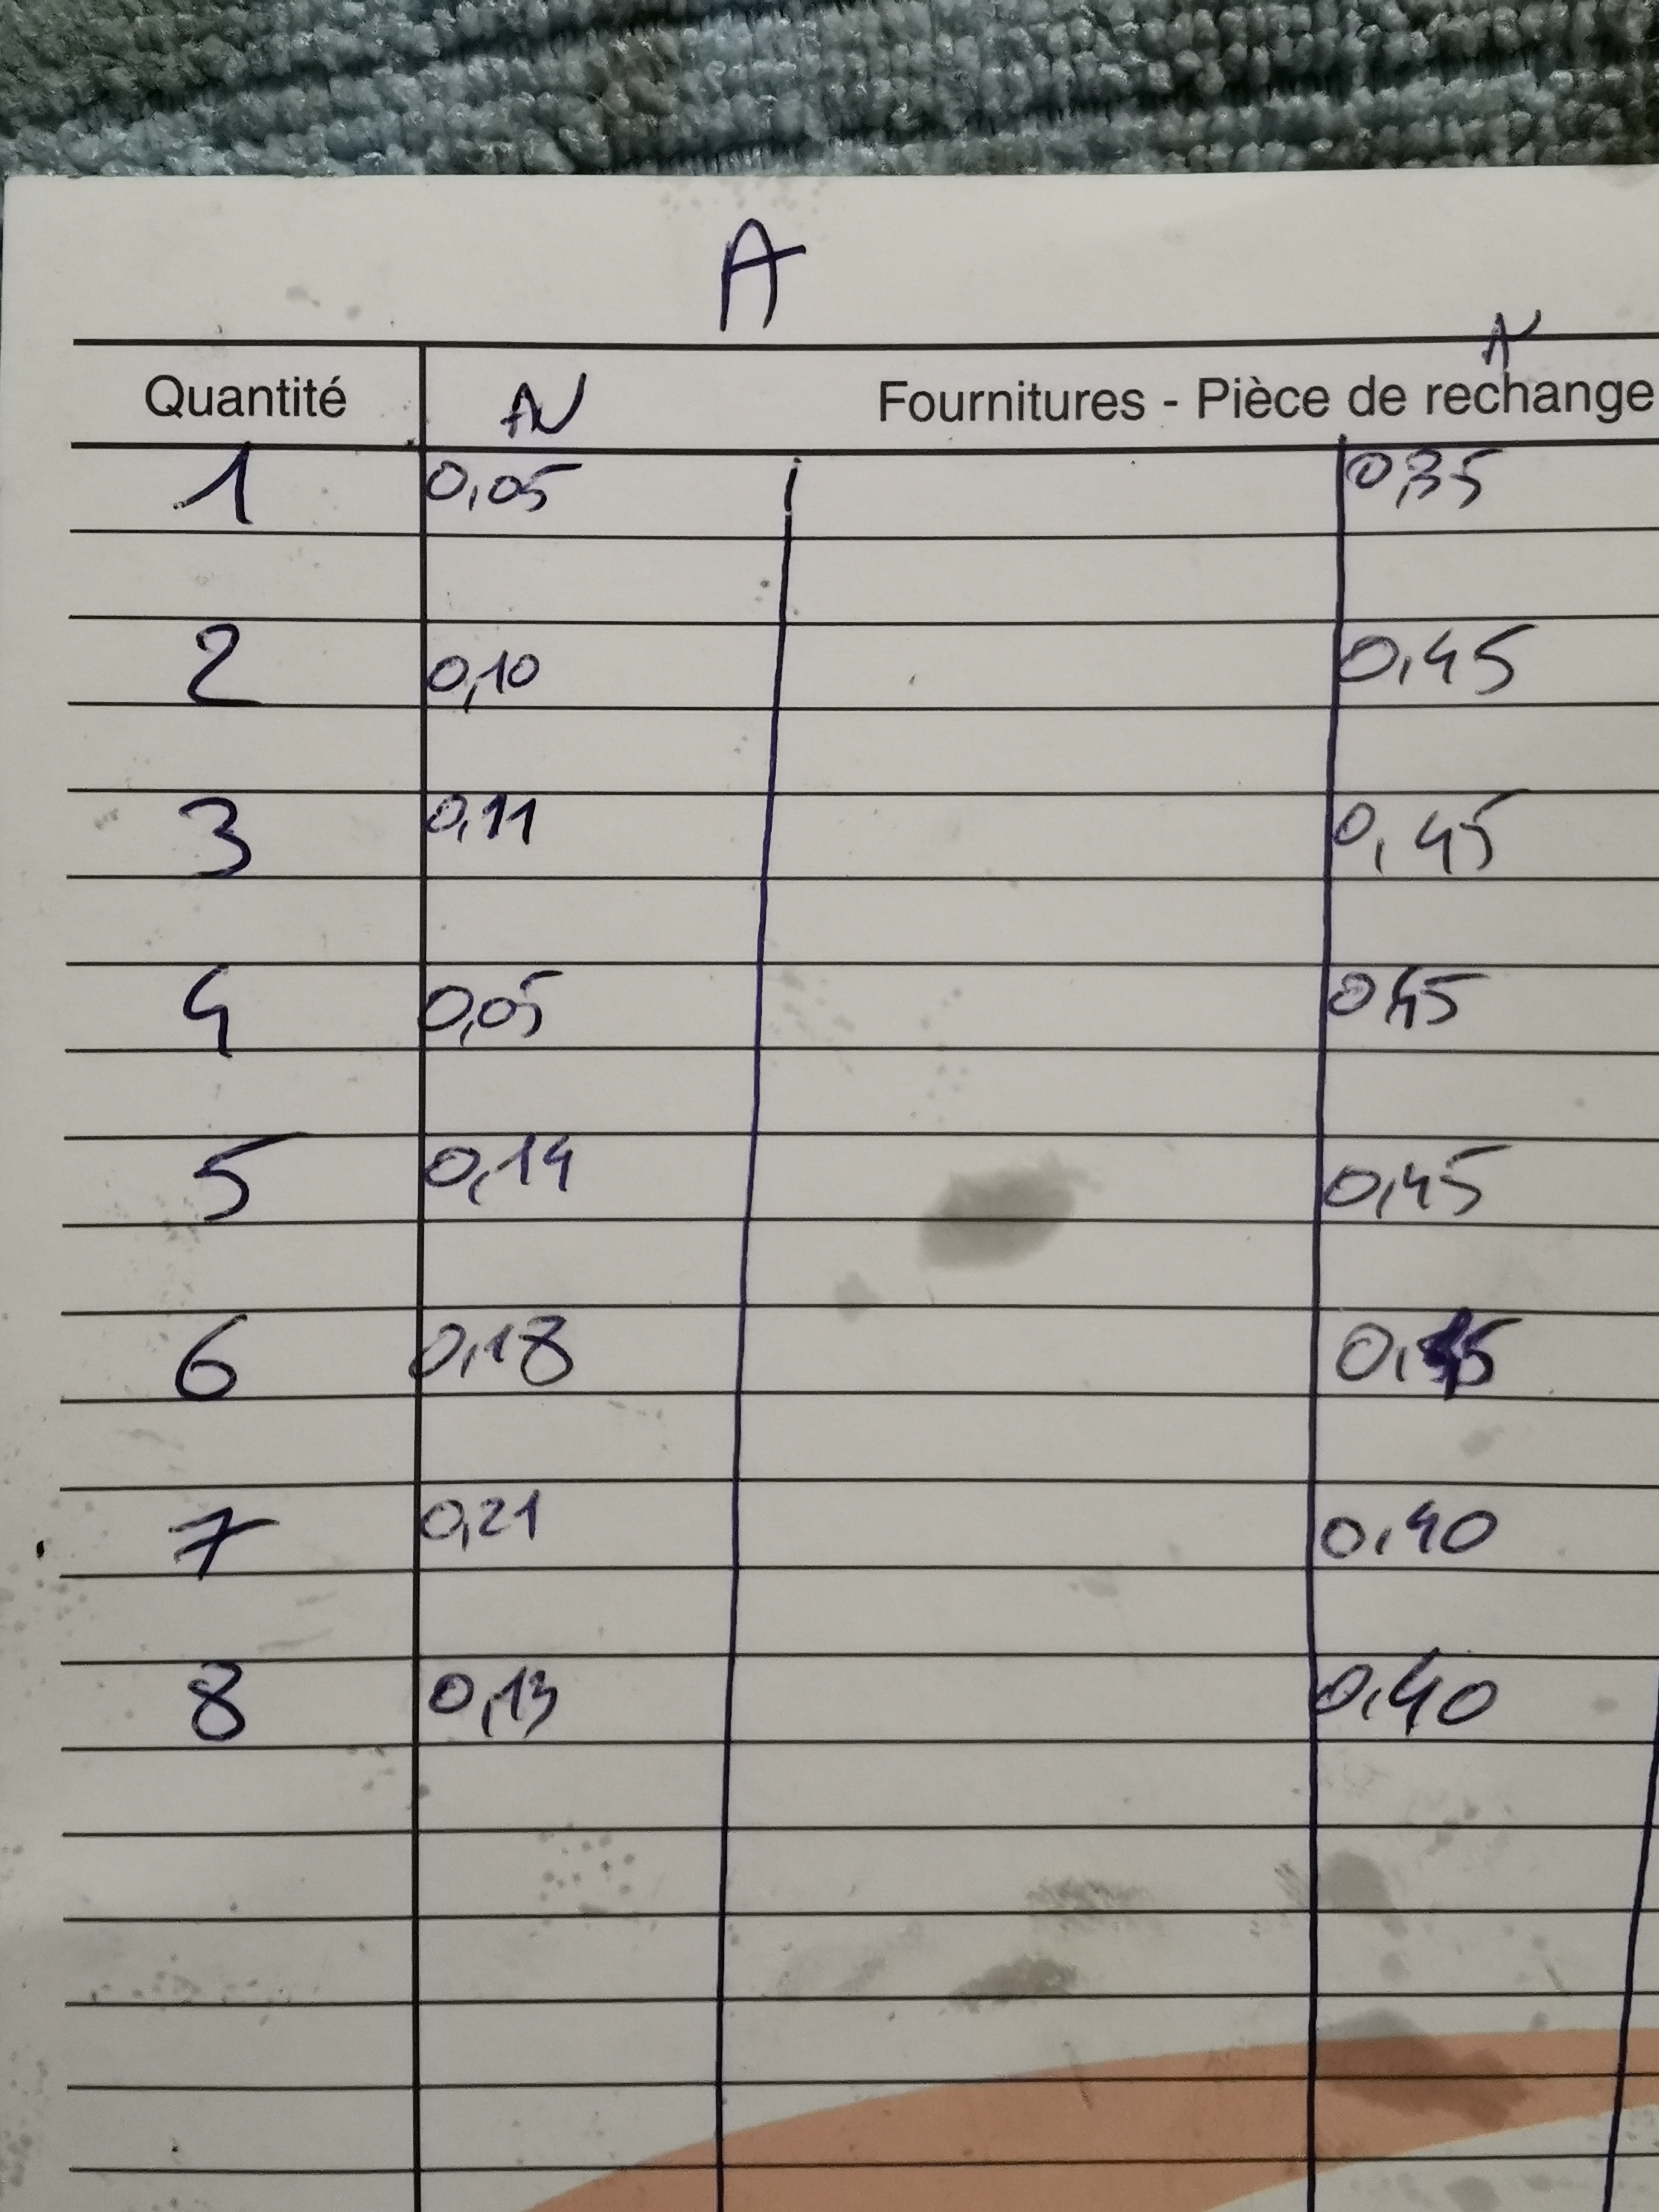 A
Quantité AV Fournitures - Pièce de rechange
1 0,05 0,35
2 0,10 0,45
3 0,11 0,45
4 0,05 0,45
5 0,14 0,45
6 0,18
7 0,21 0,40
8 0,13 0,40